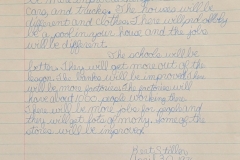 cars, and trucks. The houses will be
different and clothes. There will probably
be a pool in your house and the jobs
will be different.
The schools will be
better. They will get more out of the
lesson. The banks will be improved. There
will be more pictures. The pictures will
have about 1000 people working there.
There will be more jobs for people and
they will get lots of money. Some of the
stores will be improved.